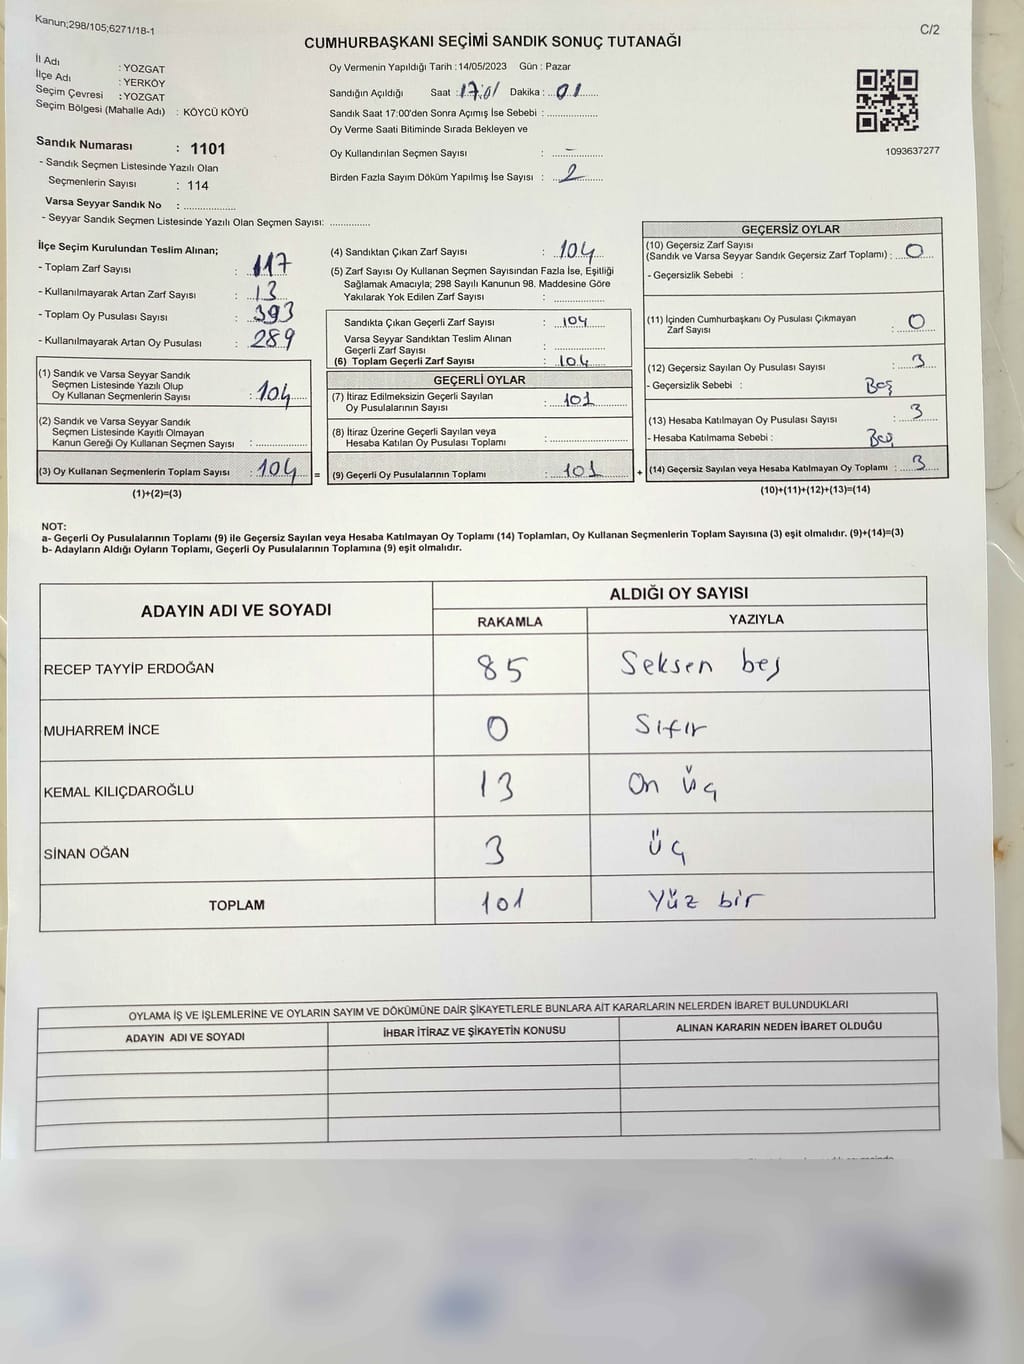 Kanun;298/105;6271/18-1
C/2
CUMHURBAŞKANI SEÇİMİ SANDIK SONUÇ TUTANAĞI
İl Adı : YOZGAT
İlçe Adı : YERKÖY
Seçim Çevresi : YOZGAT
Seçim Bölgesi (Mahalle Adı) : KÖYCÜ KÖYÜ
Sandık Numarası : 1101
- Sandık Seçmen Listesinde Yazılı Olan
Seçmenlerin Sayısı : 114
Varsa Seyyar Sandık No : ..................
- Seyyar Sandık Seçmen Listesinde Yazılı Olan Seçmen Sayısı: ..............
Oy Vermenin Yapıldığı Tarih : 14/05/2023 Gün : Pazar
Sandığın Açıldığı Saat : 17:01 Dakika : 01
Sandık Saat 17:00'den Sonra Açımış İse Sebebi : ..................
Oy Verme Saati Bitiminde Sırada Bekleyen ve
Oy Kullandırılan Seçmen Sayısı : –
Birden Fazla Sayım Döküm Yapılmış İse Sayısı : 2
1093637277
İlçe Seçim Kurulundan Teslim Alınan;
- Toplam Zarf Sayısı : 117
- Kullanılmayarak Artan Zarf Sayısı : 13
- Toplam Oy Pusulası Sayısı : 393
- Kullanılmayarak Artan Oy Pusulası : 289
(1) Sandık ve Varsa Seyyar Sandık
Seçmen Listesinde Yazılı Olup
Oy Kullanan Seçmenlerin Sayısı : 104
(2) Sandık ve Varsa Seyyar Sandık
Seçmen Listesinde Kayıtlı Olmayan
Kanun Gereği Oy Kullanan Seçmen Sayısı : ..............
(3) Oy Kullanan Seçmenlerin Toplam Sayısı : 104 =
(1)+(2)=(3)
(4) Sandıktan Çıkan Zarf Sayısı : 104
(5) Zarf Sayısı Oy Kullanan Seçmen Sayısından Fazla İse, Eşitliği
Sağlamak Amacıyla; 298 Sayılı Kanunun 98. Maddesine Göre
Yakılarak Yok Edilen Zarf Sayısı : ..............
Sandıkta Çıkan Geçerli Zarf Sayısı : 104
Varsa Seyyar Sandıktan Teslim Alınan
Geçerli Zarf Sayısı : ..............
(6) Toplam Geçerli Zarf Sayısı : 104
GEÇERLİ OYLAR
(7) İtiraz Edilmeksizin Geçerli Sayılan
Oy Pusulalarının Sayısı : 101
(8) İtiraz Üzerine Geçerli Sayılan veya
Hesaba Katılan Oy Pusulası Toplamı : ..............
(9) Geçerli Oy Pusulalarının Toplamı : 101 +
GEÇERSİZ OYLAR
(10) Geçersiz Zarf Sayısı
(Sandık ve Varsa Seyyar Sandık Geçersiz Zarf Toplamı) : 0
- Geçersizlik Sebebi :
(11) İçinden Cumhurbaşkanı Oy Pusulası Çıkmayan
Zarf Sayısı : 0
(12) Geçersiz Sayılan Oy Pusulası Sayısı : 3
- Geçersizlik Sebebi : Boş
(13) Hesaba Katılmayan Oy Pusulası Sayısı : 3
- Hesaba Katılmama Sebebi : Boş
(14) Geçersiz Sayılan veya Hesaba Katılmayan Oy Toplamı : 3
(10)+(11)+(12)+(13)=(14)
NOT:
a- Geçerli Oy Pusulalarının Toplamı (9) ile Geçersiz Sayılan veya Hesaba Katılmayan Oy Toplamı (14) Toplamları, Oy Kullanan Seçmenlerin Toplam Sayısına (3) eşit olmalıdır. (9)+(14)=(3)
b- Adayların Aldığı Oyların Toplamı, Geçerli Oy Pusulalarının Toplamına (9) eşit olmalıdır.
ADAYIN ADI VE SOYADI
ALDIĞI OY SAYISI
RAKAMLA YAZIYLA
RECEP TAYYİP ERDOĞAN 85 Seksen beş
MUHARREM İNCE 0 Sıfır
KEMAL KILIÇDAROĞLU 13 On üç
SİNAN OĞAN 3 üç
TOPLAM 101 Yüz bir
OYLAMA İŞ VE İŞLEMLERİNE VE OYLARIN SAYIM VE DÖKÜMÜNE DAİR ŞİKAYETLERLE BUNLARA AİT KARARLARIN NELERDEN İBARET BULUNDUKLARI
ADAYIN ADI VE SOYADI İHBAR İTİRAZ VE ŞİKAYETİN KONUSU ALINAN KARARIN NEDEN İBARET OLDUĞU